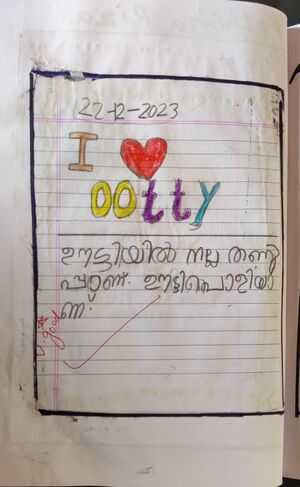 22-12-2023
I ❤
ootty
ഊട്ടിയിൽ നല്ല തണു
പ്പാണ്. ഊട്ടിപൊളിയാ
ണ.
v. good